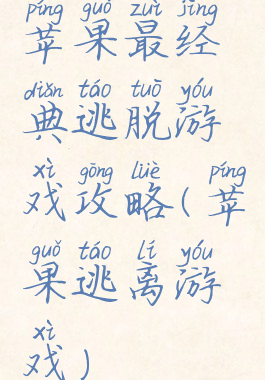 píng guǒ zuì jīng
苹果最经
diǎn táo tuō yóu
典逃脱游
xì gōng lüè píng
戏攻略(苹
guǒ táo lí yóu
果逃离游
xì
戏)